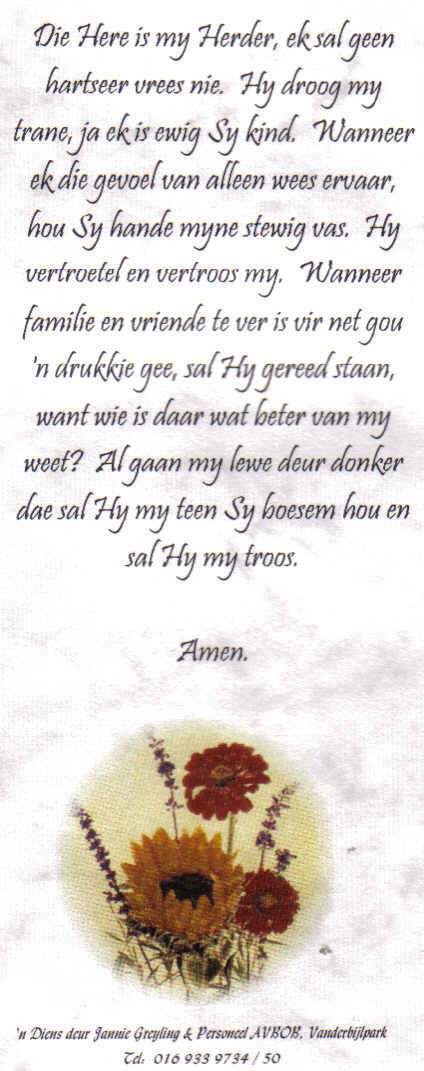 Die Here is my Herder, ek sal geen
hartseer vrees nie. Hy droog my
trane, ja ek is ewig Sy kind. Wanneer
ek die gevoel van alleen wees ervaar,
hou Sy hande myne stewig vas. Hy
vertroetel en vertroos my. Wanneer
familie en vriende te ver is vir net gou
'n drukkie gee, sal Hy gereed staan,
want wie is daar wat beter van my
weet? Al gaan my lewe deur donker
dae sal Hy my teen Sy boesem hou en
sal Hy my troos.
Amen.
'n Diens deur Jannie Greyling & Personeel AVBOB, Vanderbijlpark
Tel: 016 933 9734 / 50